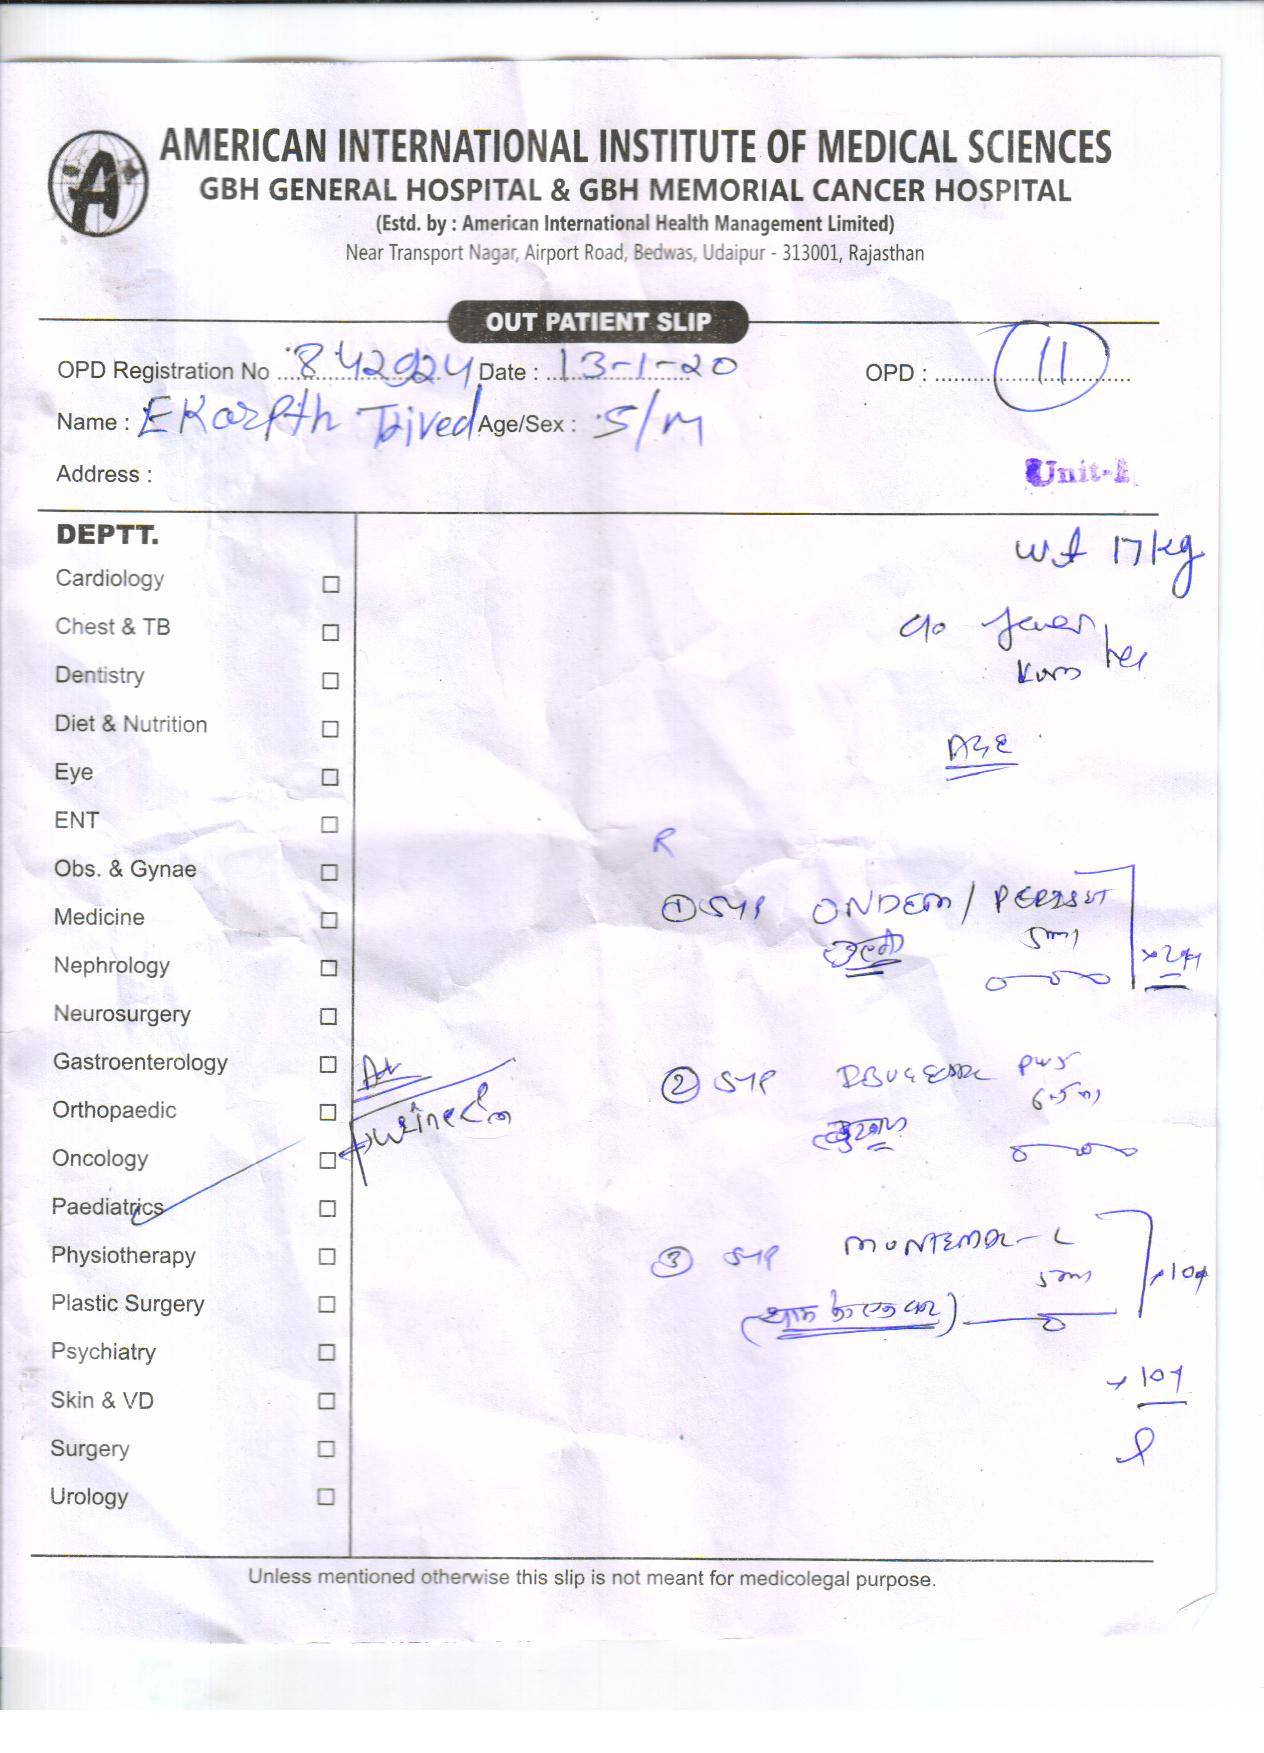 AMERICAN INTERNATIONAL INSTITUTE OF MEDICAL SCIENCES
GBH GENERAL HOSPITAL & GBH MEMORIAL CANCER HOSPITAL
(Estd. by : American International Health Management Limited)
Near Transport Nagar, Airport Road, Bedwas, Udaipur - 313001, Rajasthan
OUT PATIENT SLIP
OPD Registration No 842924 Date : 13-1-20 OPD : 11
Name : Age/Sex : 5/m
Address :
Unit-I
DEPTT.
Cardiology
Chest & TB
Dentistry
Diet & Nutrition
Eye
ENT
Obs. & Gynae
Medicine
Nephrology
Neurosurgery
Gastroenterology
Orthopaedic
Oncology
Paediatrics
Physiotherapy
Plastic Surgery
Psychiatry
Skin & VD
Surgery
Urology
wt 17kg
c/o fever
R
① SYP ONDEM /
5ml
② SYP
③ SYP
5ml
Unless mentioned otherwise this slip is not meant for medicolegal purpose.